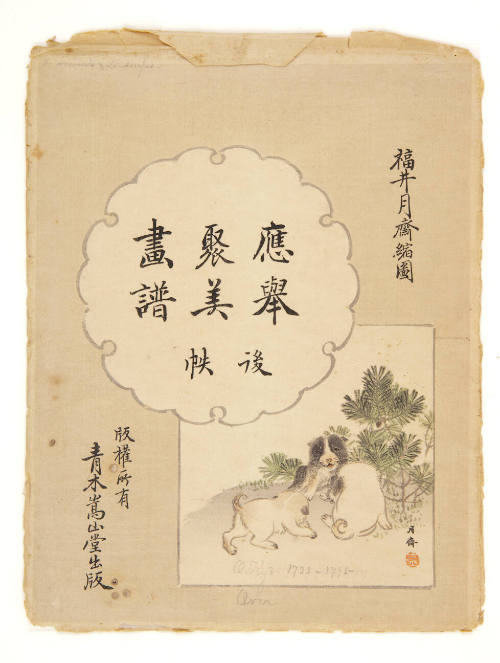 福井月齋縮圖
應舉
聚美
畫譜
後
帙
版權所有
青木嵩山堂出版
月齋
1733-1795